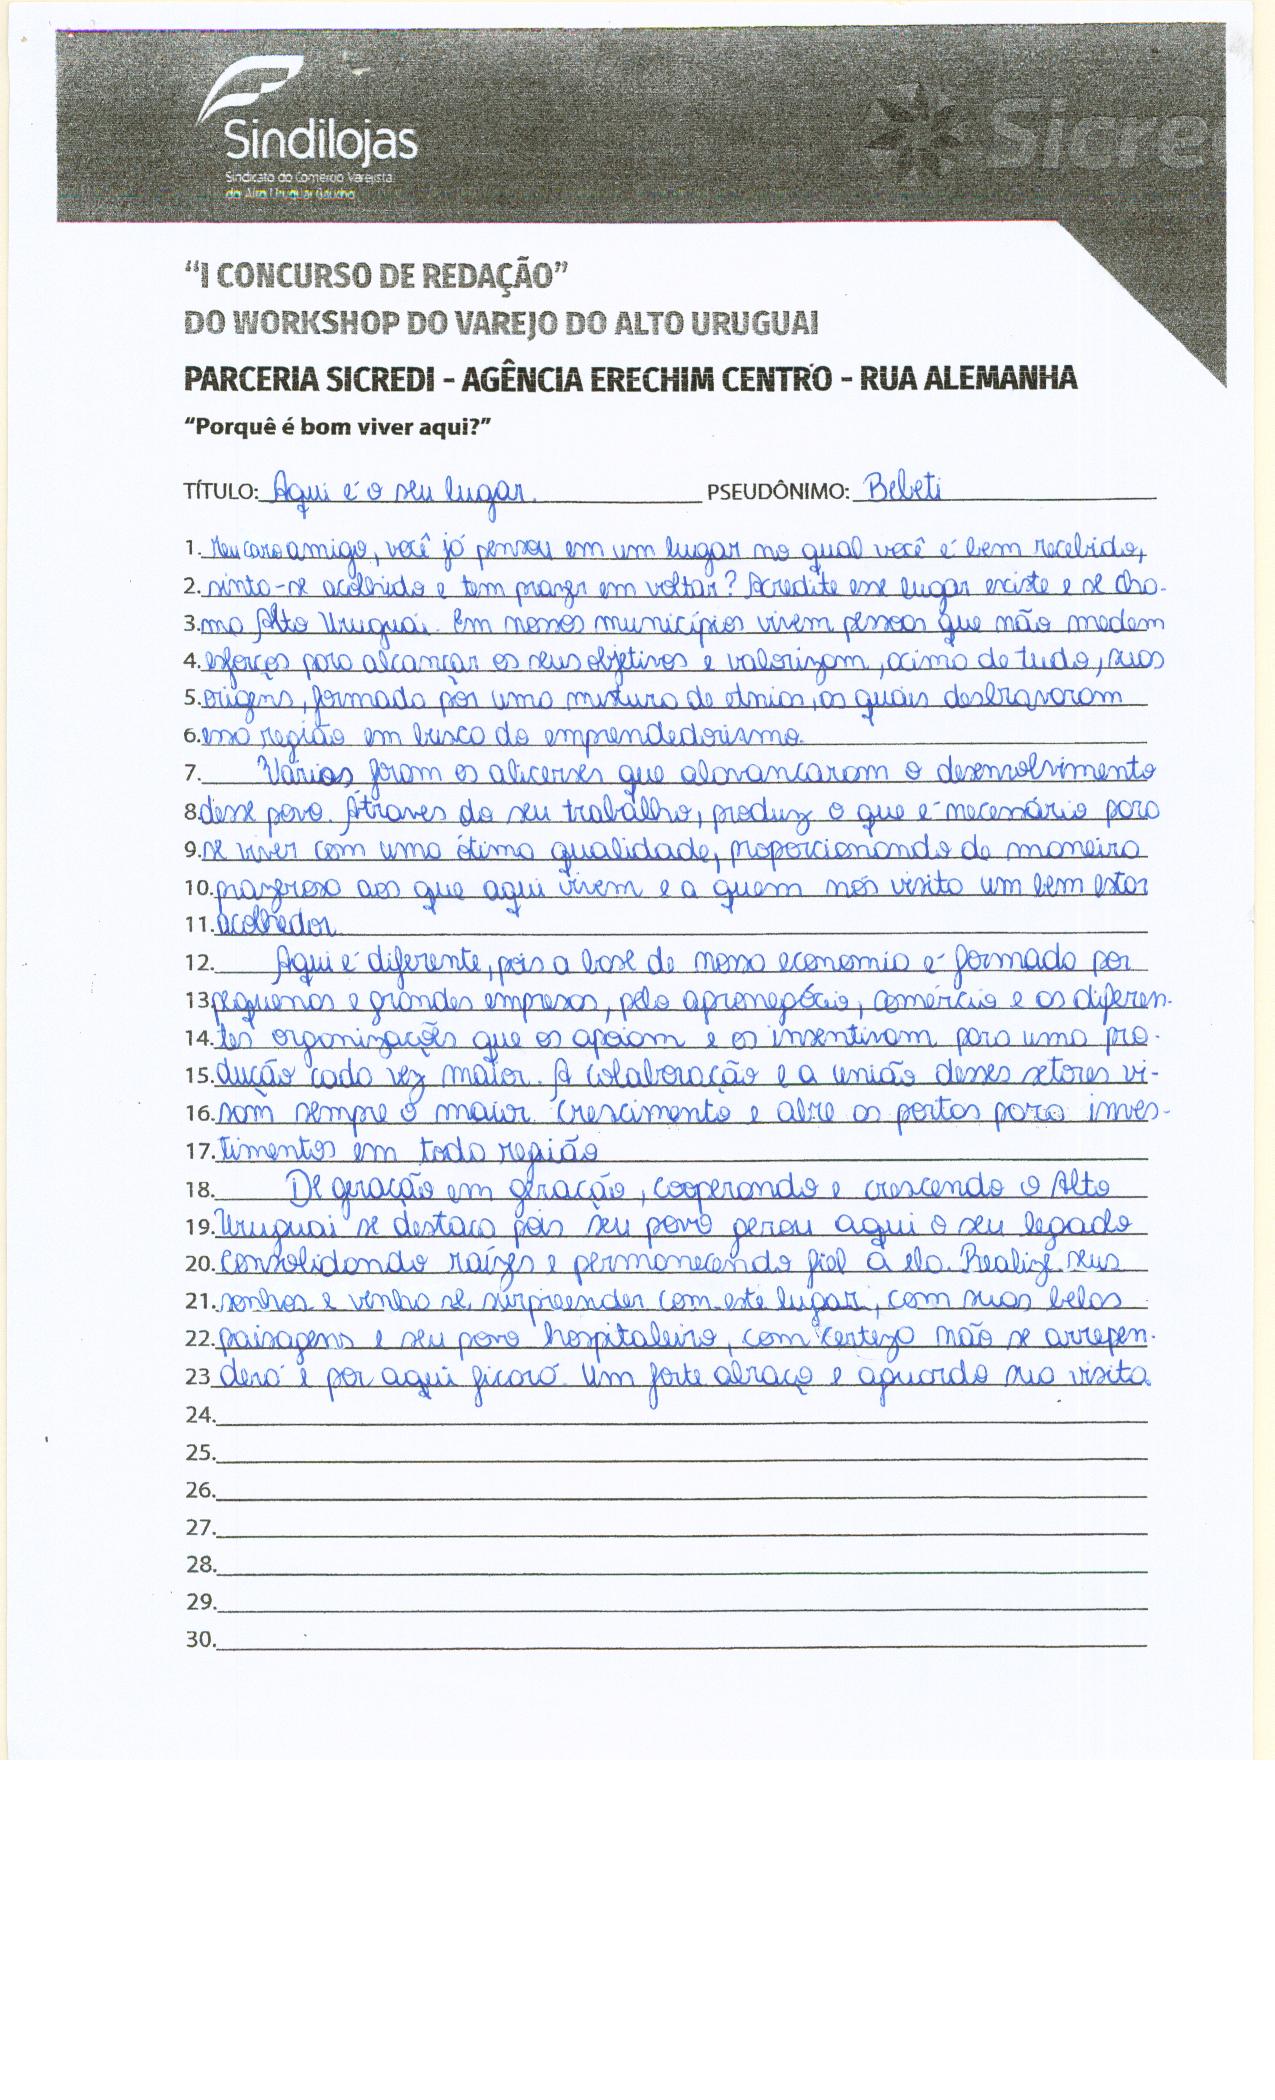 Sindilojas
Sindicato do Comércio Varejista
do Alto Uruguai Gaúcho
Sicre
“I CONCURSO DE REDAÇÃO”
DO WORKSHOP DO VAREJO DO ALTO URUGUAI
PARCERIA SICREDI - AGÊNCIA ERECHIM CENTRO - RUA ALEMANHA
“Porquê é bom viver aqui?”
TÍTULO: Aqui é o seu lugar. PSEUDÔNIMO: Bebeti
1. Meu caro amigo, você já pensou em um lugar no qual você é bem recebido,
2. sinta-se acolhido e tem prazer em voltar? Acredite esse lugar existe e se cha-
3. ma Alto Uruguai. Em nossos municípios vivem pessoas que não medem
4. esforços para alcançar os seus objetivos e valorizam, acima de tudo, suas
5. origens, formada por uma mistura de etnias, as quais desbravaram
6. essa região em busca do emprendedorismo.
7. Vários foram os alicerses que alavancaram o desenvolvimento
8. desse povo. Através do seu trabalho, produz o que é necessário para
9. se viver com uma ótima qualidade, proporcionando de maneira
10. prazerosa aos que aqui vivem e a quem nos visita um bem estar
11. acolhedor.
12. Aqui é diferente, pois a base de nossa economia é formada por
13. pequenas e grandes empresas, pelo agronegócio, comércio e as diferen-
14. tes organizações que os apoiam e os insentivam para uma pro-
15. dução cada vez maior. A colaboração e a união desses setores vi-
16. sam sempre o maior crescimento e abre as portas para inves-
17. timentos em toda região
18. De geração em geração, cooperando e crescendo o Alto
19. Uruguai se destaca pois seu povo gerou aqui o seu legado
20. consolidando raízes e permanecendo fiel à ela. Realize seus
21. sonhos e venha se surpreender com este lugar, com suas belas
22. paisagens e seu povo hospitaleiro, com certeza não se arrepen-
23. derá e por aqui ficará. Um forte abraço e aguardo sua visita.
24.
25.
26.
27.
28.
29.
30.